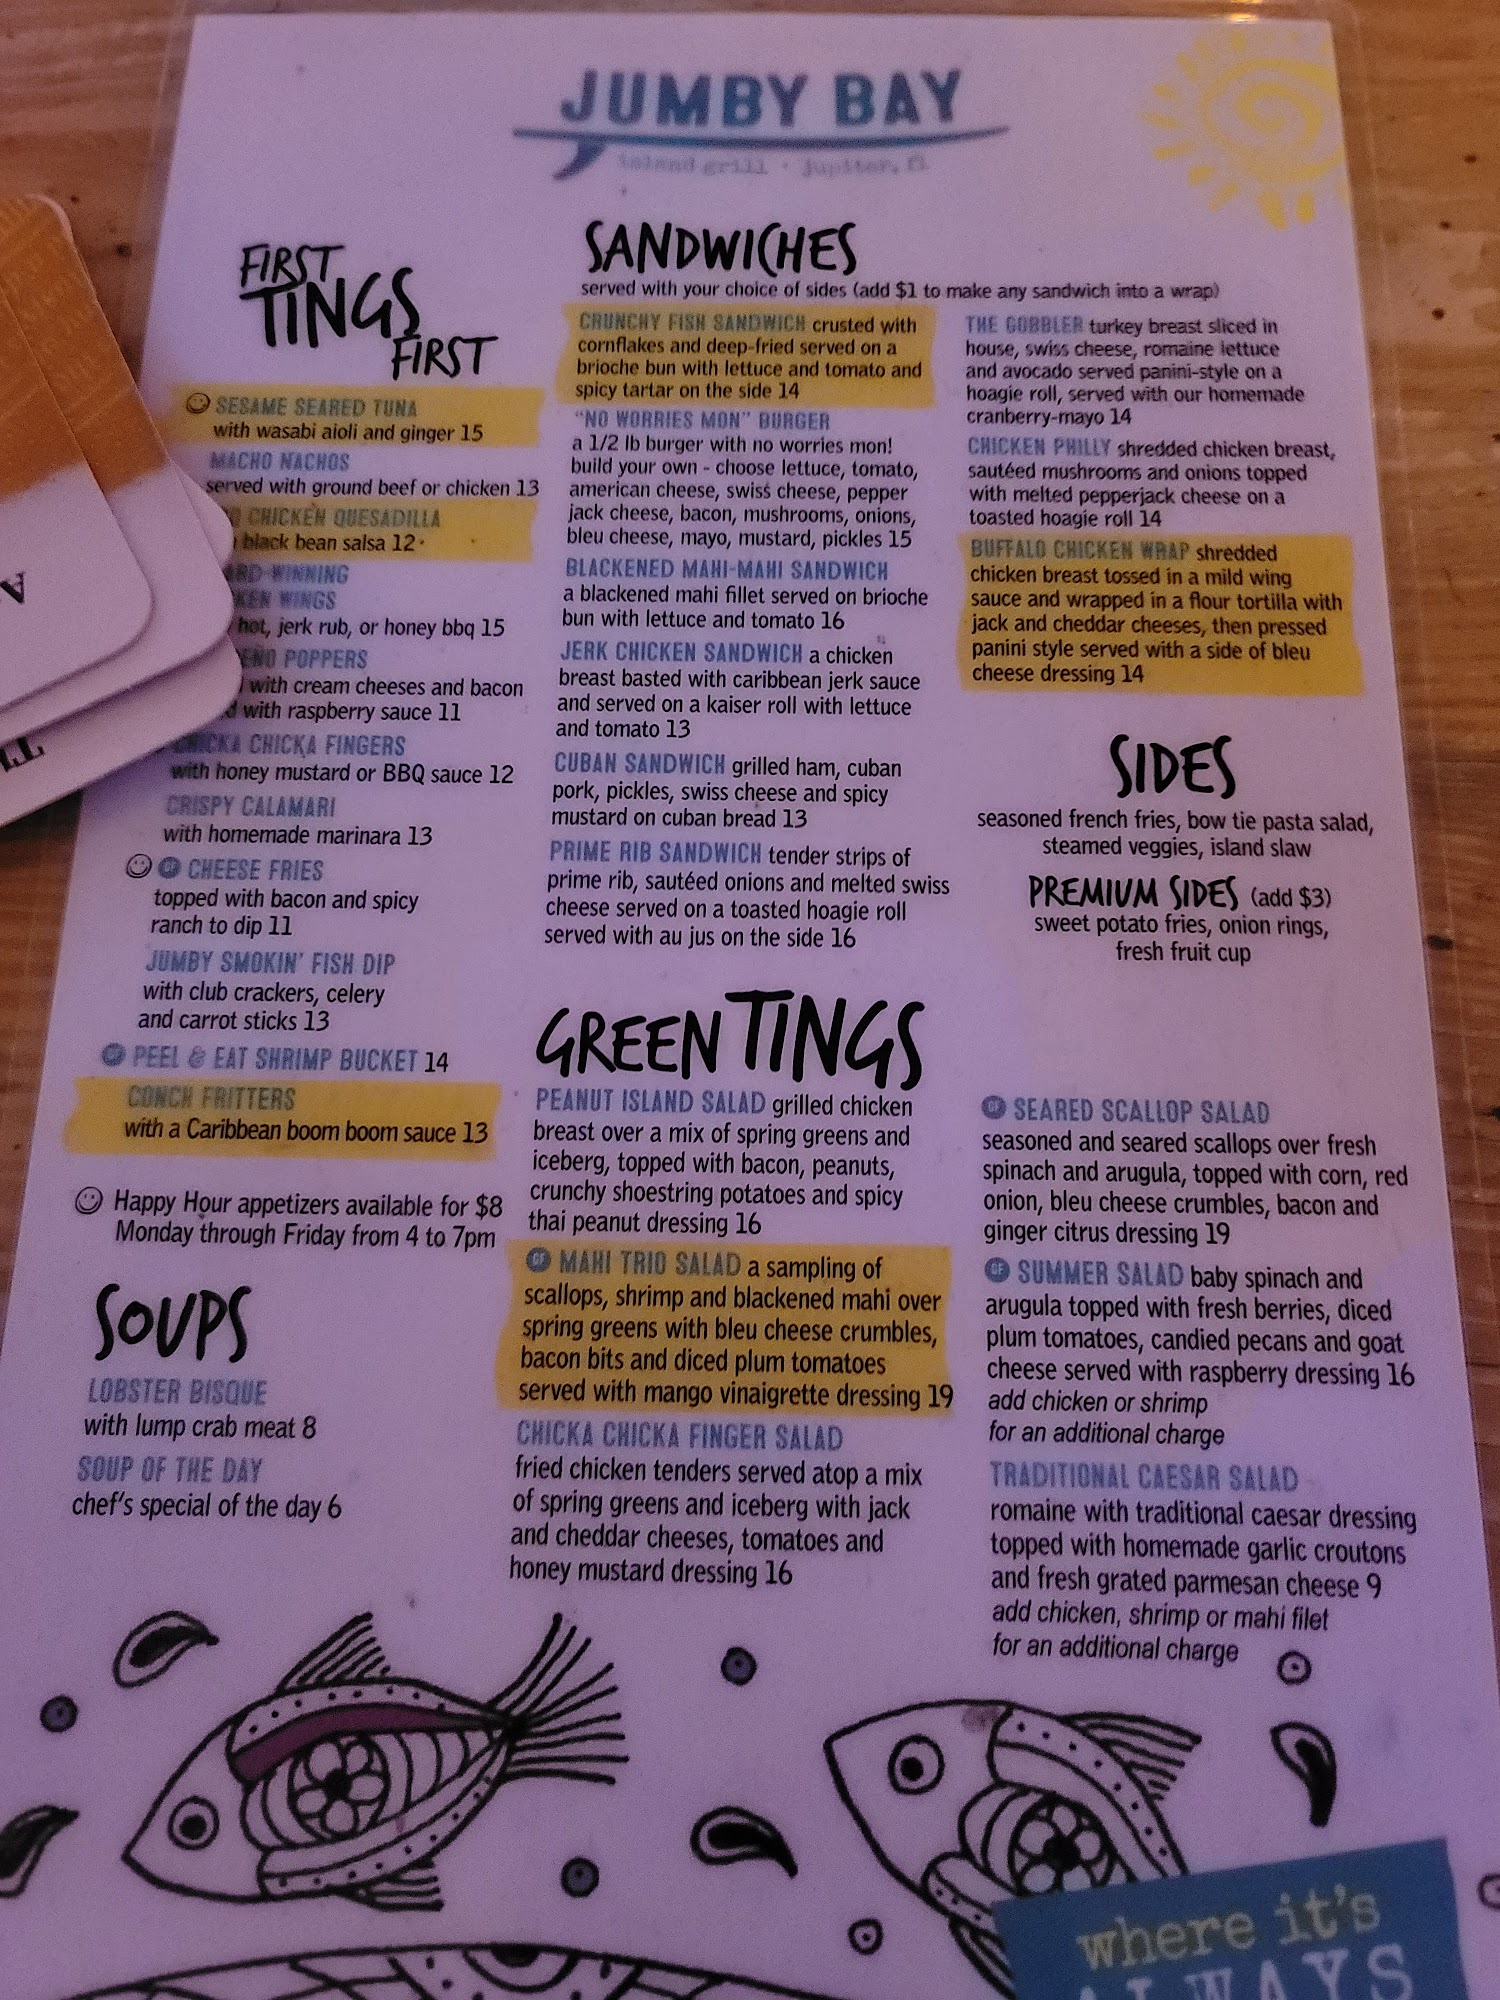 JUMBY BAY
island grill · jupiter, fl
FIRST
TINGS
FIRST
SESAME SEARED TUNA
with wasabi aioli and ginger 15
MACHO NACHOS
served with ground beef or chicken 13
CHICKEN QUESADILLA
black bean salsa 12
WINNING
WINGS
hot, jerk rub, or honey bbq 15
POPPERS
with cream cheeses and bacon
with raspberry sauce 11
CHICKA CHICKA FINGERS
with honey mustard or BBQ sauce 12
CRISPY CALAMARI
with homemade marinara 13
GF CHEESE FRIES
topped with bacon and spicy
ranch to dip 11
JUMBY SMOKIN' FISH DIP
with club crackers, celery
and carrot sticks 13
GF PEEL & EAT SHRIMP BUCKET 14
CONCH FRITTERS
with a Caribbean boom boom sauce 13
Happy Hour appetizers available for $8
Monday through Friday from 4 to 7pm
SOUPS
LOBSTER BISQUE
with lump crab meat 8
SOUP OF THE DAY
chef's special of the day 6
SANDWICHES
served with your choice of sides (add $1 to make any sandwich into a wrap)
CRUNCHY FISH SANDWICH crusted with
cornflakes and deep-fried served on a
brioche bun with lettuce and tomato and
spicy tartar on the side 14
"NO WORRIES MON" BURGER
a 1/2 lb burger with no worries mon!
build your own - choose lettuce, tomato,
american cheese, swiss cheese, pepper
jack cheese, bacon, mushrooms, onions,
bleu cheese, mayo, mustard, pickles 15
BLACKENED MAHI-MAHI SANDWICH
a blackened mahi fillet served on brioche
bun with lettuce and tomato 16
JERK CHICKEN SANDWICH a chicken
breast basted with caribbean jerk sauce
and served on a kaiser roll with lettuce
and tomato 13
CUBAN SANDWICH grilled ham, cuban
pork, pickles, swiss cheese and spicy
mustard on cuban bread 13
PRIME RIB SANDWICH tender strips of
prime rib, sautéed onions and melted swiss
cheese served on a toasted hoagie roll
served with au jus on the side 16
THE GOBBLER turkey breast sliced in
house, swiss cheese, romaine lettuce
and avocado served panini-style on a
hoagie roll, served with our homemade
cranberry-mayo 14
CHICKEN PHILLY shredded chicken breast,
sautéed mushrooms and onions topped
with melted pepperjack cheese on a
toasted hoagie roll 14
BUFFALO CHICKEN WRAP shredded
chicken breast tossed in a mild wing
sauce and wrapped in a flour tortilla with
jack and cheddar cheeses, then pressed
panini style served with a side of bleu
cheese dressing 14
SIDES
seasoned french fries, bow tie pasta salad,
steamed veggies, island slaw
PREMIUM SIDES (add $3)
sweet potato fries, onion rings,
fresh fruit cup
GREEN TINGS
PEANUT ISLAND SALAD grilled chicken
breast over a mix of spring greens and
iceberg, topped with bacon, peanuts,
crunchy shoestring potatoes and spicy
thai peanut dressing 16
GF MAHI TRIO SALAD a sampling of
scallops, shrimp and blackened mahi over
spring greens with bleu cheese crumbles,
bacon bits and diced plum tomatoes
served with mango vinaigrette dressing 19
CHICKA CHICKA FINGER SALAD
fried chicken tenders served atop a mix
of spring greens and iceberg with jack
and cheddar cheeses, tomatoes and
honey mustard dressing 16
GF SEARED SCALLOP SALAD
seasoned and seared scallops over fresh
spinach and arugula, topped with corn, red
onion, bleu cheese crumbles, bacon and
ginger citrus dressing 19
GF SUMMER SALAD baby spinach and
arugula topped with fresh berries, diced
plum tomatoes, candied pecans and goat
cheese served with raspberry dressing 16
add chicken or shrimp
for an additional charge
TRADITIONAL CAESAR SALAD
romaine with traditional caesar dressing
topped with homemade garlic croutons
and fresh grated parmesan cheese 9
add chicken, shrimp or mahi filet
for an additional charge
where it's
ALWAYS